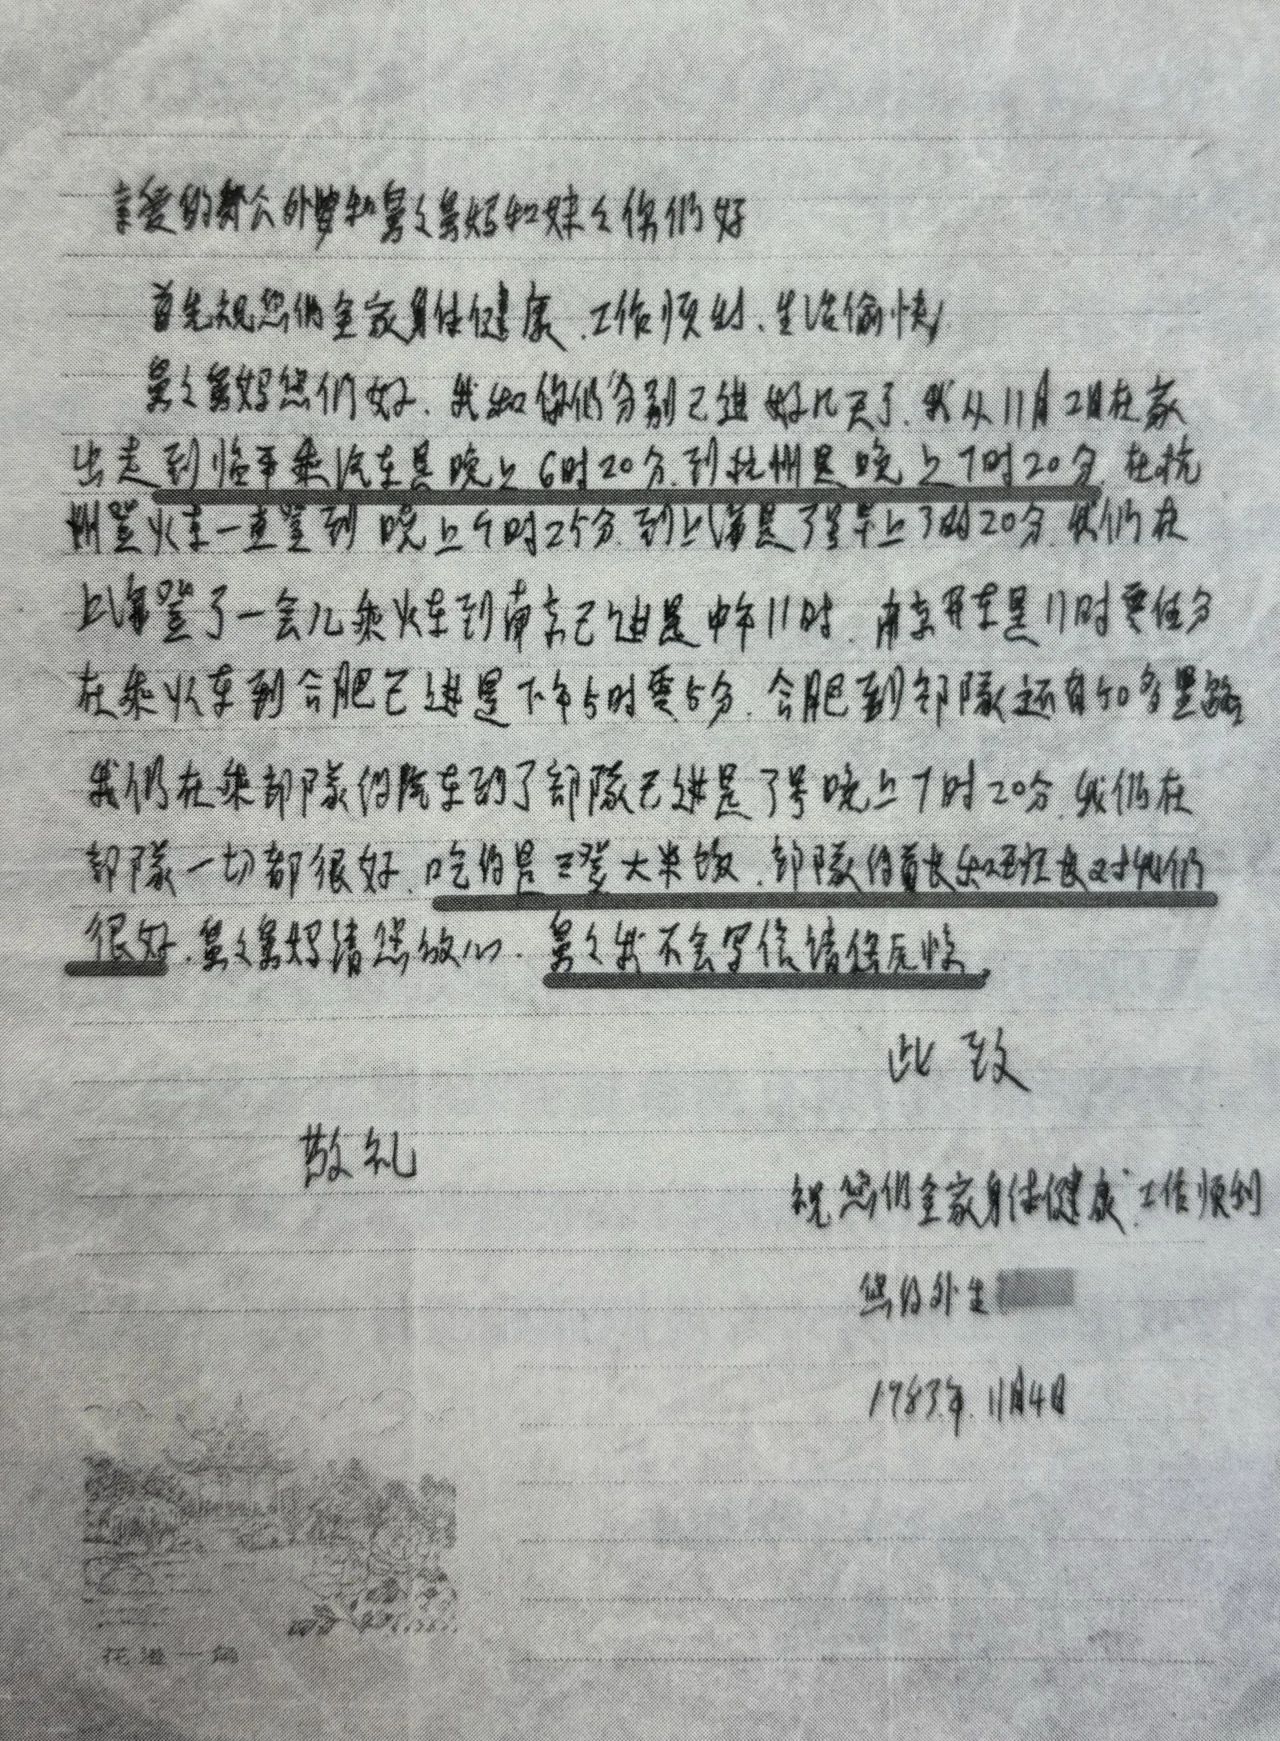 亲爱的外公外婆和舅々舅妈和妹々你们好
首先祝您们全家身体健康、工作顺利、生活愉快
舅々舅妈您们好、我和你们分别己进好几天了、我从11月2日在家
出走到临平乘汽车是晚上6时20分.到杭州是晚上7时20分.在杭
州登火车一直登到晚上9时25分.到上海是3号早上3时20分.我们在
上海登了一会儿乘火车到南京己进是中午11时.南京开车是11时零任分
在乘火车到合肥己进是下午5时零5分.合肥到部隊还有50多里路
我们在乘部隊的汽车到了部隊己进是3号晚上7时20分.我们在
部隊一切都很好.吃的是三登大米饭.部隊的首长和班长对我们
很好.舅々舅妈请您放心.舅々我不会写信请您反惊.
此致
敬礼
祝您们全家身体健康、工作顺利
您的外生
1983年.11月4日
花港一角